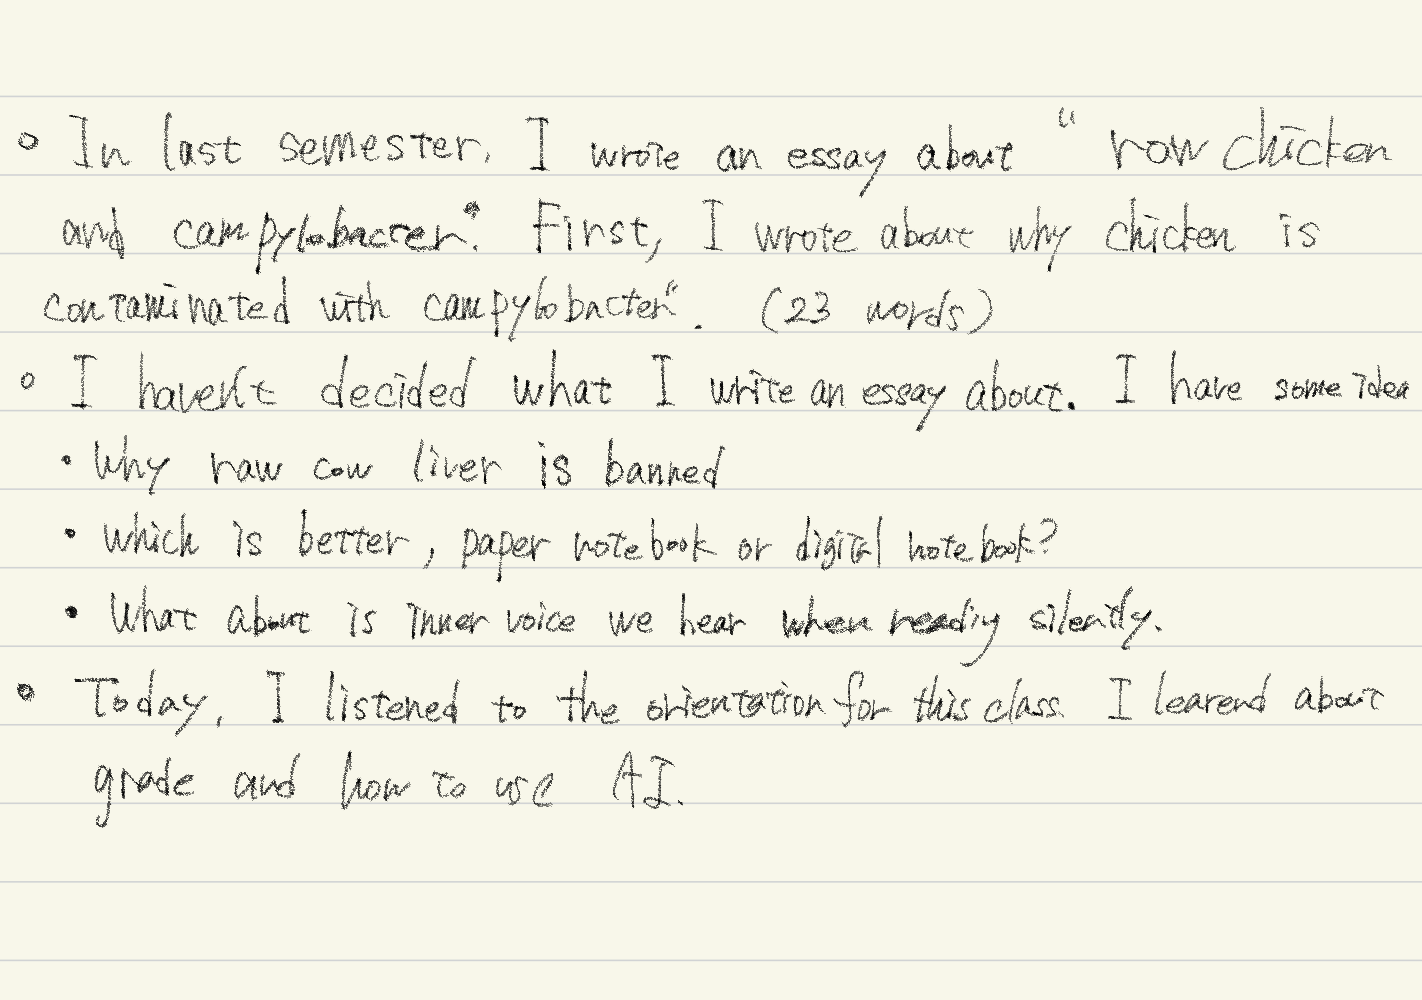 ○ In last semester, I wrote an essay about “ row chicken
and campylobacter”. First, I wrote about why chicken is
contaminated with campylobacter“. (23 words)
○ I haven't decided what I write an essay about. I have some idea
• Why raw cow liver is banned
• which is better, paper notebook or digital notebook?
• What about is inner voice we hear when readiy silently.
○ Today, I listened to the orientation for this class. I learend about
grade and how to use AI.